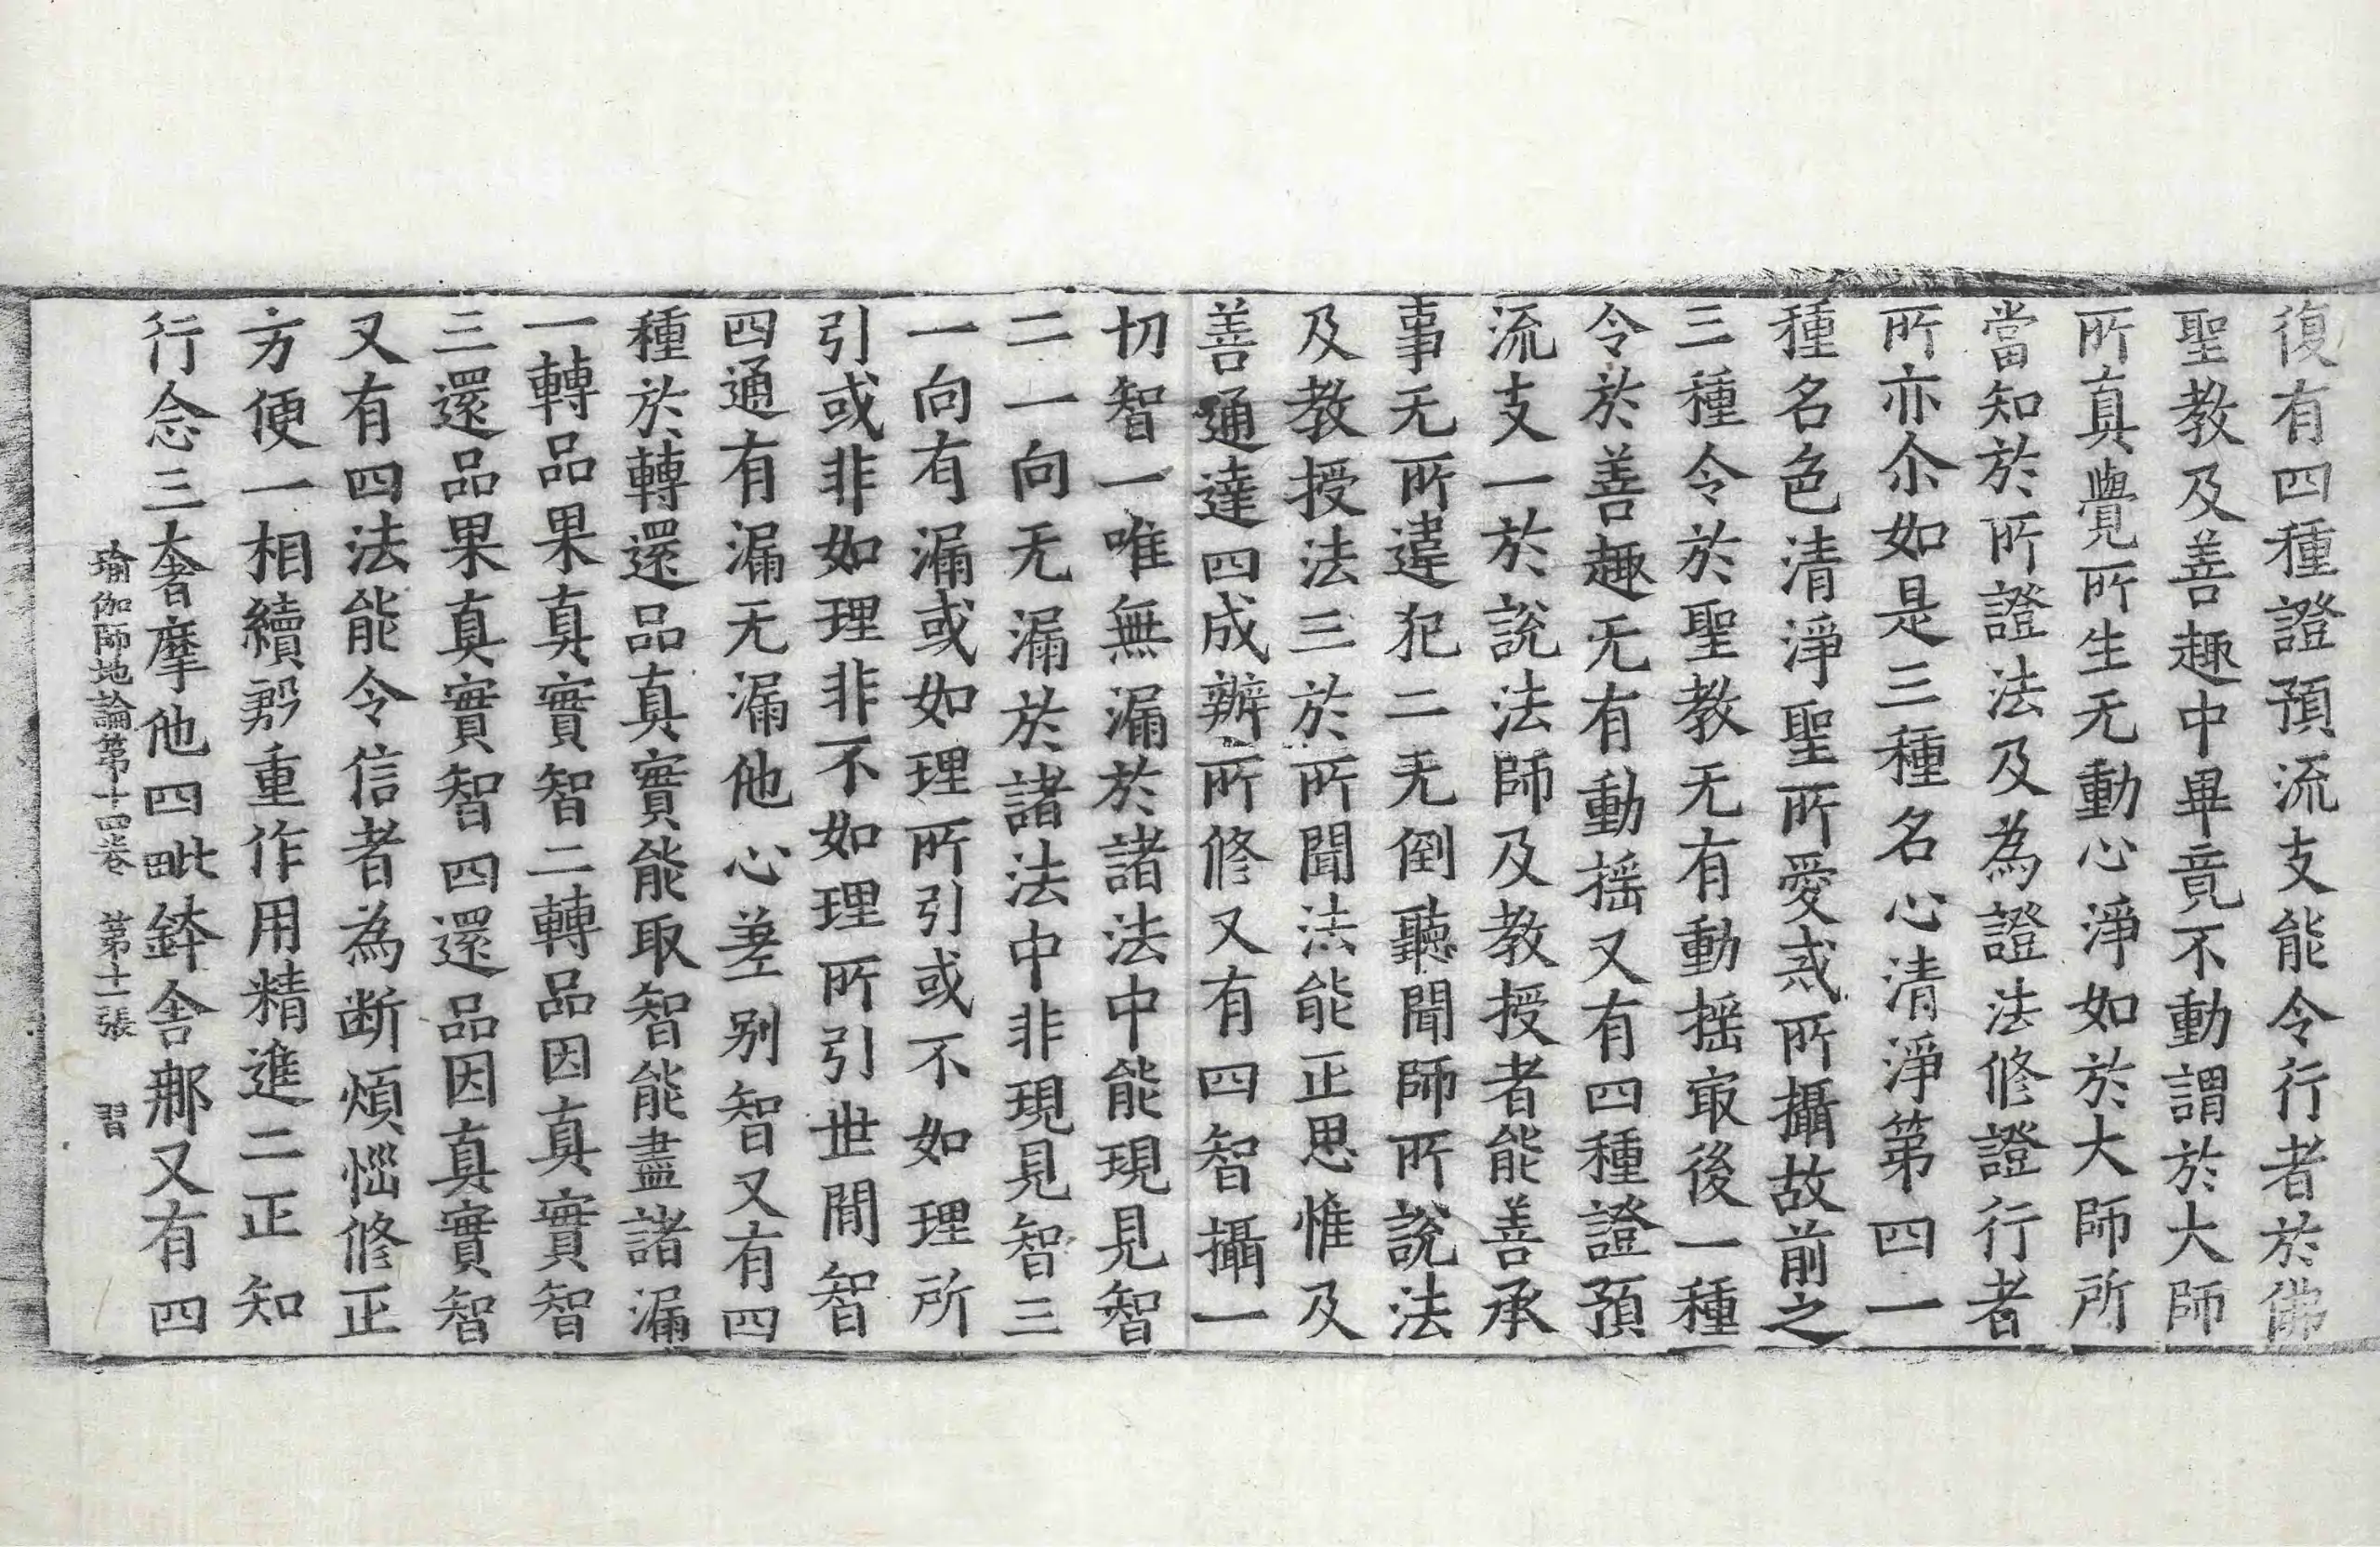 復有四種證預流支能令行者於佛
聖教及善趣中畢竟不動謂於大師
所真覺所生无動心淨如於大師所
當知於所證法及為證法修證行者
所亦尒如是三種名心清淨第四一
種名色清淨聖所愛戒所攝故前之
三種令於聖教无有動搖㝡後一種
令於善趣无有動搖又有四種證預
流支一於說法師及教授者能善承
事无所違犯二无倒聽聞師所說法
及教授法三於所聞法能正思惟及
善通達四成辦所修又有四智攝一
切智一唯無漏於諸法中能現見智
二一向无漏於諸法中非現見智三
一向有漏或如理所引或不如理所
引或非如理非不如理所引世間智
四通有漏无漏他心差別智又有四
種於轉還品真實能取智能盡諸漏
一轉品果真實智二轉品因真實智
三還品果真實智四還品因真實智
又有四法能令信者為断煩惱修正
方便一相續殷重作用精進二正知
行念三奢摩他四毗鉢舍那又有四
瑜伽師地論第十四卷 第十一張 習